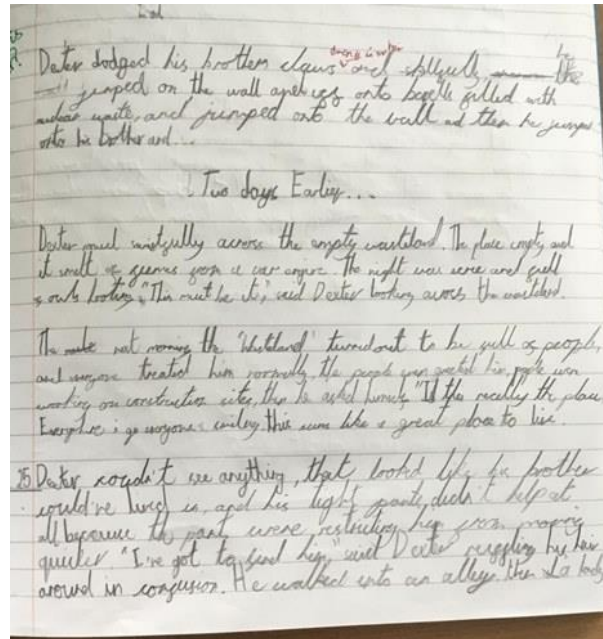 Dexter dodged his brothers claws and skillfully, he
jumped on the wall and onto filled with
waste, and jumped onto the wall and then he jumped
onto his brother and...
Two days Earlier...
Dexter across the empty wasteland. The place empty and
it smelt of from a car engine. The night was and full
of owls hooting. "This must be it," said Dexter looking across the wasteland.
The next morning the 'Wasteland' turned out to be full of people,
and treated him normally, the people even him, people were
working on construction sites, then he asked himself, "If this really the place
Everywhere i go everyone smiling this like a great place to live.
25 Dexter couldn't see anything, that looked like his brother
could've lived in, and his tight pants, didn't help at
all because the pant were restricting him from moving
quicker. "I've got to find him," said Dexter his hair
around in confusion. He walked into an alley, then a lady